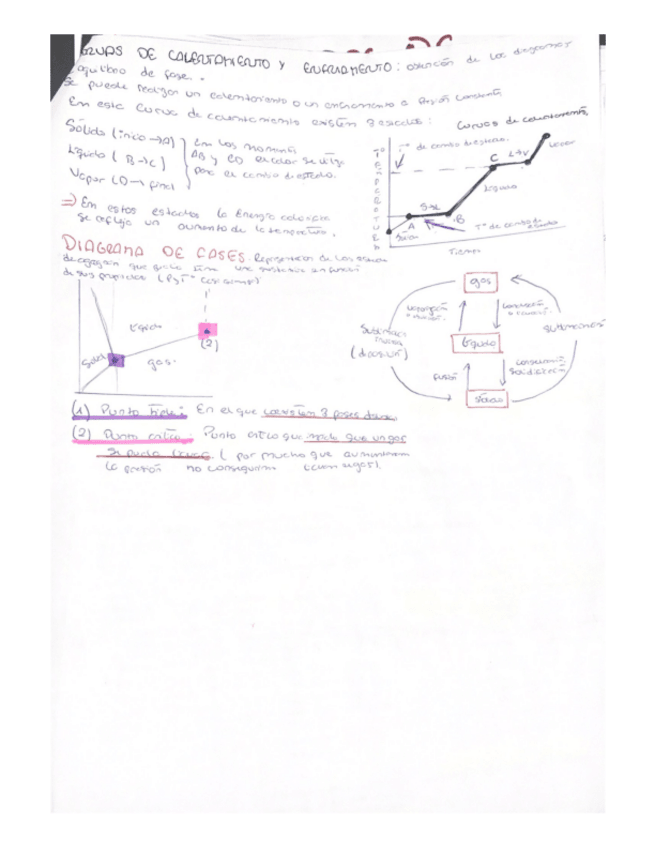 CURVAS DE CALENTAMIENTO Y ENFRIAMIENTO: obtención de los diagramas
equilibrio de fase.
Se puede realizar un calentamiento o un enfriamiento a Presión constante,
En esta curva de calentamiento existen 3 estados:
Sólido (inicio → A)
Líquido ( B → C)
Vapor (D → final
En los momentos
AB y CD el calor se utiliza
para el cambio de estado.
Curvas de calentamiento,
TEMPERATURA
Tª de cambio de estado.
C
L+V
Vapor
Líquido
S+L
A
B
Sólido
Tª de cambio de
estado
Tiempo
⇒ En estos estados la Energía calorífica
se refleja un aumento de la temperatura.
DIAGRAMA DE FASES. Representación de los estados
de agregación que puede tener una sustancia en función
de sus propiedades (P y Tª
Líquido
Sólido
gas.
(2)
gas
Vaporización
Condensación
Líquido
fusión
solidificación
sólido
Sublimación
(1) Punto triple: En el que coexisten 3 fases
(2) Punto crítico: Punto crítico que hace que un gas
se pueda ( por mucho que aumentaramos
la presión no conseguirian licuar el gas).